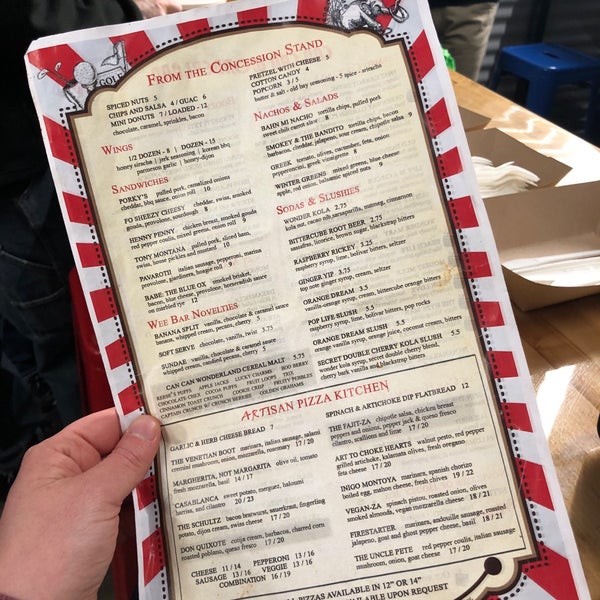 GOLF
FROM THE CONCESSION STAND
SPICED NUTS 5
CHIPS AND SALSA 4 / GUAC 6
MINI DONUTS 7 / LOADED - 12
chocolate, caramel, sprinkles, bacon
WINGS
1/2 DOZEN - 8 | DOZEN - 15
honey siracha | jerk seasoning | korean bbq
parmesan garlic | honey-dijon
SANDWICHES
PORKY'S pulled pork, carmalized onions
cheddar, bbq sauce, onion roll 10
FO SHEEZY CHEESY cheddar, swiss, smoked
gouda, provolone, sourdough 8
HENNY PENNY chicken breast, smoked gouda
red pepper coulis, mixed greens, onion roll 9
TONY MONTANA pulled pork, diced ham,
swiss, horse pickles and mustard 10
PAVAROTTI italian sausage, pepperoni, marinara
provolone, giardinera, hoagie roll 9
BABE: THE BLUE OX smoked brisket,
bacon, blue cheese, provolone, horseradish sauce
on marbled rye 12
WEE BAR NOVELTIES
BANANA SPLIT vanilla, chocolate & caramel sauce
bananas, whipped cream, pecans, cherry 5
SOFT SERVE chocolate, vanilla, twist 3.75
SUNDAE vanilla, chocolate & caramel sauce
whipped cream, candied pecans, cherry 5
CAN CAN WONDERLAND CEREAL MALT 5.75
REESE'S PUFFS APPLE JACKS LUCKY CHARMS BOO BERRY
CHOCOLATE CHEX COCOA PUFFS FRUIT LOOPS TRIX
CINNAMON TOAST CRUNCH COOKIE CRISP FRUITY PEBBLES
CAPTAIN CRUNCH W/ CRUNCH BERRIES GOLDEN GRAHAMS
PRETZEL WITH CHEESE 5
COTTON CANDY 4
POPCORN 3 / 5
butter & salt - old bay seasoning - 5 spice - sriracha
NACHOS & SALADS
BAHN MI NACHO tortilla chips, pulled pork
sweet chili carrot slaw 8
SMOKEY & THE BANDITO tortilla chips, bacon
barbacon, cheddar, jalapeño, sour cream, chipotle salsa 9
GREEK tomato, olives, cucumber, feta, onion
pepperoncini, greek vinigrette 8
WINTER GREENS mixed greens, blue cheese
apple, red onion, balsamic, spiced nuts 9
SODAS & SLUSHIES
WONDER KOLA 2.75
kola nut, cacao nib, sarsaparilla, nutmeg, cinnamon
BITTERCUBE ROOT BEER 2.75
sassafras, licorice, brown sugar, blackstrap bitters
RASPBERRY RICKEY 3.25
raspberry syrup, lime, bolivar bitters, seltzer
GINGER YIP 3.75
top note ginger syrup, cream, seltzer
ORANGE DREAM 3.5
vanilla-orange syrup, cream, bittercube orange bitters
POP LIFE SLUSH 5.5
raspberry syrup, lime, bolivar bitters, pop rocks
ORANGE DREAM SLUSH 5.5
orange vanilla syrup, orange juice, coconut cream, bitters
SECRET DOUBLE CHERRY KOLA SLUSH 5.5
wonder kola syrup, secret double cherry blend,
cherry bark vanilla and blackstrap bitters
ARTISAN PIZZA KITCHEN
GARLIC & HERB CHEESE BREAD 7
THE VENETIAN BOOT marinara, italian sausage, salami
cremini mushroom, onion, mozzarella, rosemary 17 / 20
MARGHERITA, NOT MARGARITA olive oil, tomato
fresh mozzarella, basil 14 / 17
CASABLANCA sweet potato, merguez, haloumi
harriss, and cilantro 20 / 23
THE SCHULTZ bacon bratwurst, sauerkraut, fingerling
potato, dijon cream, swiss cheese 17 / 20
DON QUIXOTE cotija cream, barbacoa, charred corn
roasted poblano, queso fresco 17 / 20
CHEESE 11 / 14 PEPPERONI 13 / 16
SAUSAGE 13 / 16 VEGGIE 13 / 16
COMBINATION 16 / 19
SPINACH & ARTICHOKE DIP FLATBREAD 12
THE FAJIT-ZA chipotle salsa, chicken breast
peppers and onions, pepper jack & queso fresco
cilantro, scallions and lime 17 / 20
ART TO CHOKE HEARTS walnut pesto, red pepper
grilled artichoke, kalamata olives, fresh oregano
feta cheese 17 / 20
INIGO MONTOYA marinara, spanish chorizo
boiled egg, mahon cheese, fresh chives 19 / 22
VEGAN-ZA spinach pistou, roasted onion, olives
smoked almonds, vegan mozzarella cheese 18 / 21
FIRESTARTER marinara, andouille sausage, roasted
jalapeno, goat and ghost pepper cheese, basil 18 / 21
THE UNCLE PETE red pepper coulis, italian sausage
mushroom, onion, goat cheese, basil 17 / 20
PIZZAS AVAILABLE IN 12" OR 14"
UPON REQUEST